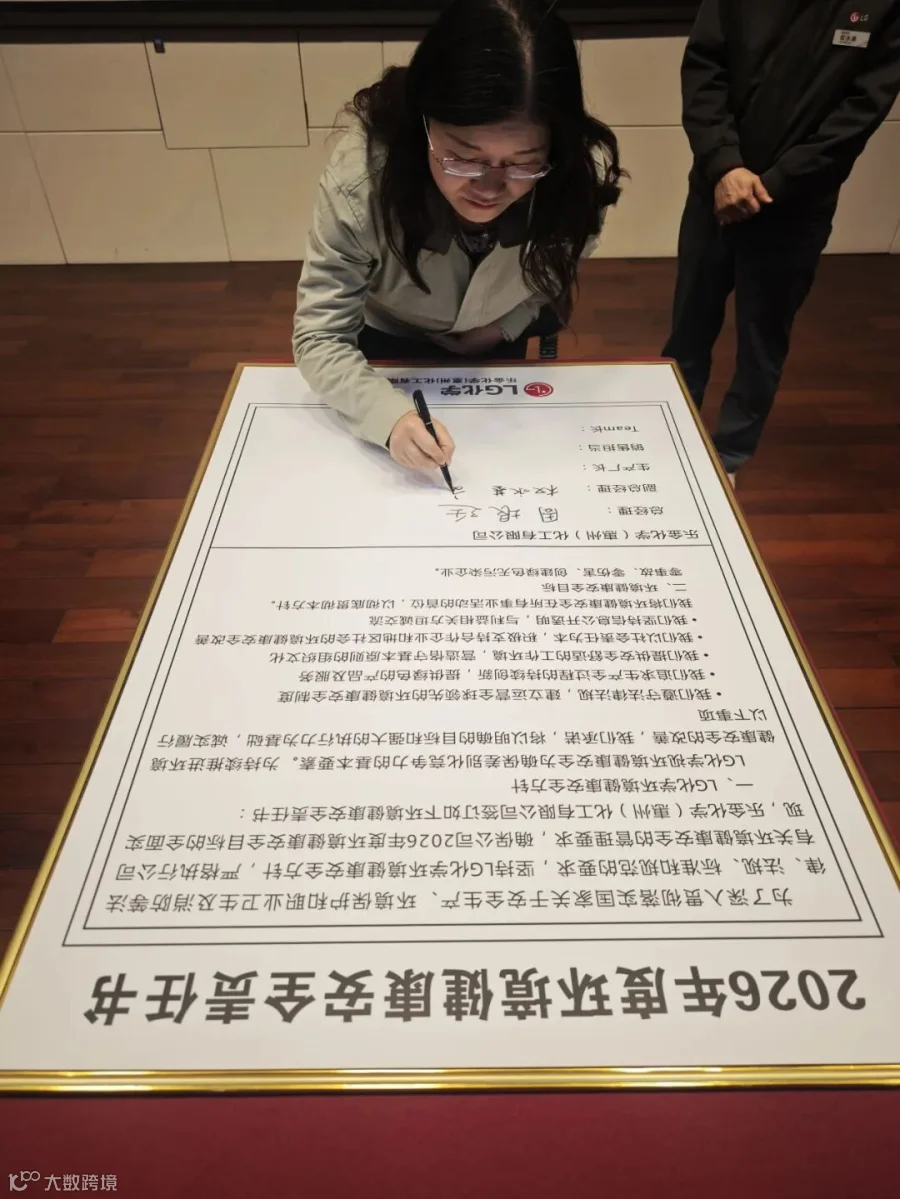 LG
2026年度环境健康安全责任书
为了深入贯彻落实国家关于安全生产、环境保护和职业卫生及消防等法
律、法规、标准和规范的要求，坚持LG化学环境健康安全方针，严格执行公司
有关环境健康安全的管理要求，确保公司2026年度环境健康安全目标的全面实
现，乐金化学（惠州）化工有限公司签订如下环境健康安全责任书：
一、LG化学环境健康安全方针
LG化学视环境健康安全为确保差别化竞争力的基本要素。为持续推进环境
健康安全的改善，我们承诺，将以明确的目标和强大的执行力为基础，诚实履行
以下事项
• 我们遵守法律法规，建立运营全球领先的环境健康安全制度
• 我们追求生产全过程的持续创新，提供绿色的产品及服务
• 我们提供安全舒适的工作环境，营造恪守基本原则的组织文化
• 我们以社会责任为本，积极支持合作企业和地区社会的环境健康安全改善
• 我们坚持信息公开透明，与利益相关方坦诚交流
我们将环境健康安全在所有事业活动的首位，以彻底贯彻本方针。
二、环境健康安全目标
零事故、零伤害、创建绿色无污染企业。
乐金化学（惠州）化工有限公司
总经理：
副总经理：
生产厂长：
销售担当：
Team长：
LG化学
乐金化学(惠州)化工有限
大数跨境